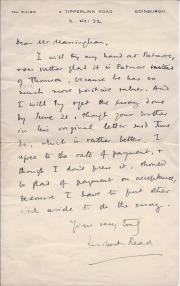 TEL 41156 TIPPERLINN ROAD EDINBURGH
2. vii. 32
Dear Mr Manningham,
I will try my hand at Patmore,
now rather glad it is Patmore instead
of Thomson, because he has so
much more positive value. And
I will try get the essay done
by June 21, though your brother
in his original letter said June
30, which is rather better. I
agree to the rate of payment, &
though I don't press it, should
be glad of payment on acceptance,
because I have to put other
work aside to do the essay.
Yours very truly
Herbert Read